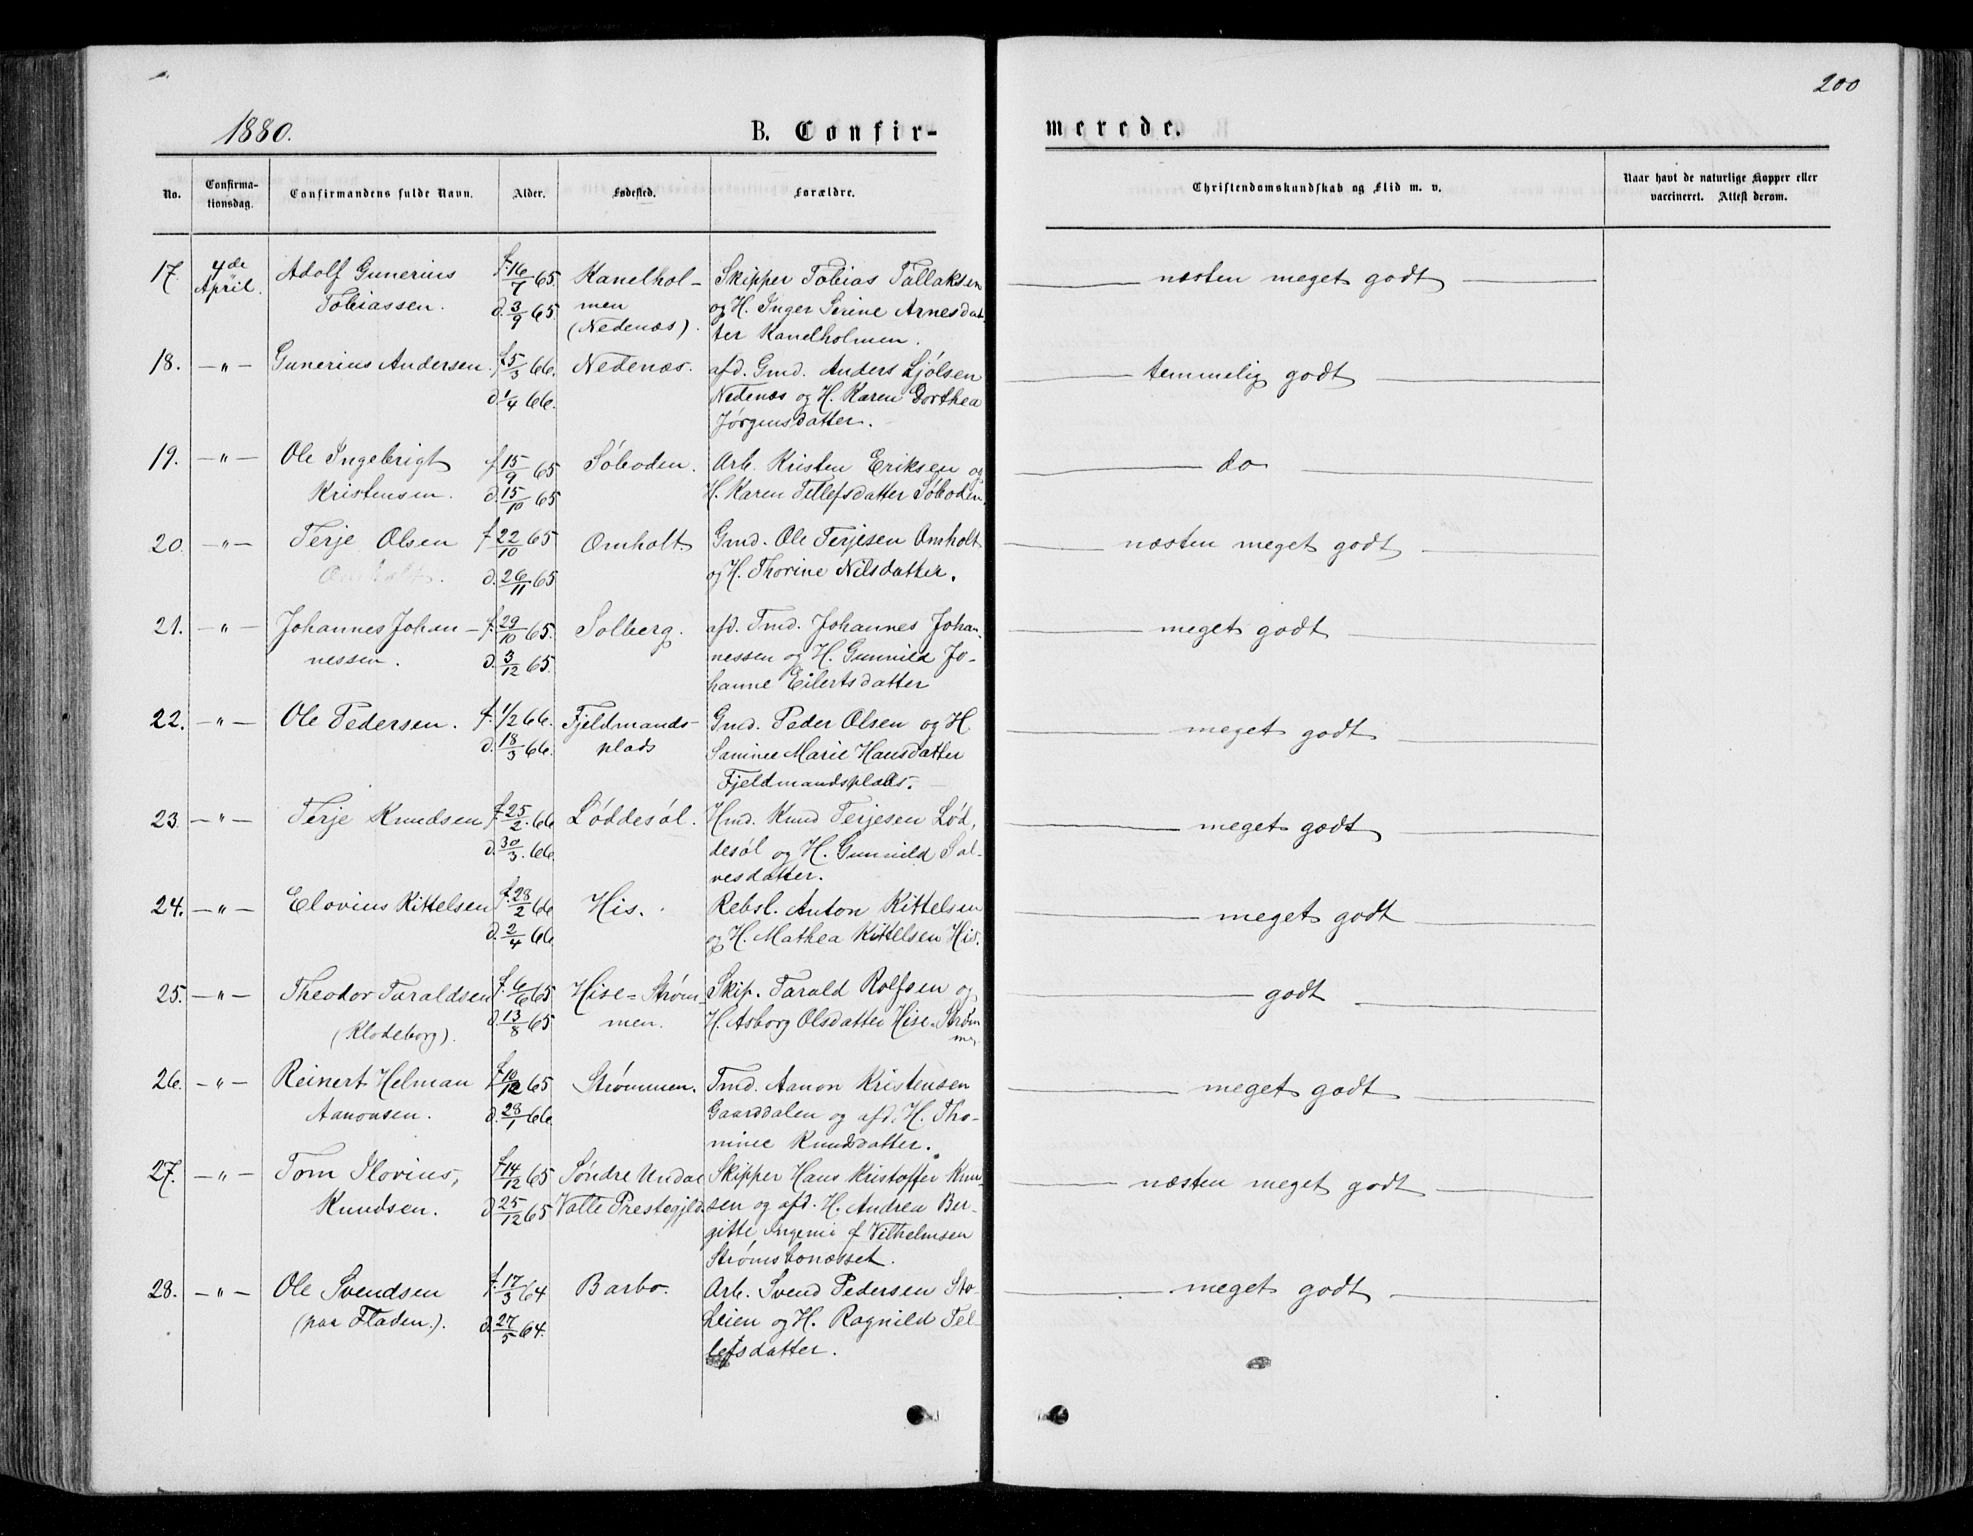 200
1880.
B. Confirmerede.
No. Confirma-tionsdag. Confirmandens fulde Navn. Alder. Fødested. Forældre. Christendomskundskab og Flid m. v. Naar havt de naturlige Kopper eller vaccineret. Attest derom.
17. 4de Adolf Gunerius f. 16/7 65 Kanelhol- Skipper Tobias Tallaksen næsten meget godt
April. Tobiassen. d. 3/9 65 men og H. Inger Serine Arnesdat-
(Nedenæs). ter Kanelholmen.
18. -"- Gunerius Andersen. f. 5/3 66. Nedenæs. afd. Gmd. Anders Ljølsen temmelig godt
d. 1/4 66. Nedenæs og H. Karen Dorthea
Jørgensdatter.
19. -"- Ole Ingebrigt f. 15/9 65 Søboden. Arb. Kristen Eriksen og do
Kristensen. d. 15/10 65 H. Karen Tellefsdatter Søboden.
20. -"- Terje Olsen f. 22/10 65 Omholt. Gmd. Ole Terjesen Omholt næsten meget godt
Omholt. d. 26/11 65 og H. Thorine Nilsdatter.
21. -"- Johannes Johan- f. 29/10 65. Solberg. afd. Tmd. Johannes Johan- meget godt
nessen. d. 3/12 65. nessen og H. Gunnild Jo-
hanne Eilertsdatter
22. -"- Ole Pedersen. f. 1/2 66. Fjeldmands- Gmd. Peder Olsen og H. meget godt
d. 18/3 66. plads Saminee Marie Hansdatter
Fjeldmandsplads.
23. -"- Terje Knudsen f. 25/2. 66 Løddesøl. Hmd. Knud Terjesen Lød- meget godt
d. 30/3. 66. desøl og H. Gunnild Sal-
vesdatter.
24. -"- Elovius Kittelsen f. 28/2 66 His. Rebsl. Anton Kittelsen meget godt
d. 2/4 66 og H. Mathea Kittelsen His.
25. -"- Theodor Taraldsen f. 6/6 65 Hise=Strøm- Skip. Tarald Rolfsen og godt
(Klodeborg). d. 13/8 65 men. H. Asborg Olsdatter Hise-Strøm
men
26. -"- Reinert Helman f. 10/12 65 Strømmen. Tmd. Aanon Kristensen meget godt
Aanonsen. d. 28/1 66. Gaarddalen og afd. H. Tho-
minee Knudsdatter.
27. -"- Tom Ilovius, f. 14/12 65 Søndre Undal Skipper Hans Kristoffer Knud- næsten meget godt
Knudsen. d. 25/12 65 Valle Prestegjeld. sen og afd. H. Andrea Ber-
gitte Ingeni f. Vilhelmsen
Strømsbonæsset.
28. -"- Ole Svendsen f. 17/3 64 Barbo. Arb. Svend Pedersen Sto- meget godt
(paa Fladen.). d. 27/5 64. Leien og H. Ragnild Tel-
lefsdatter.